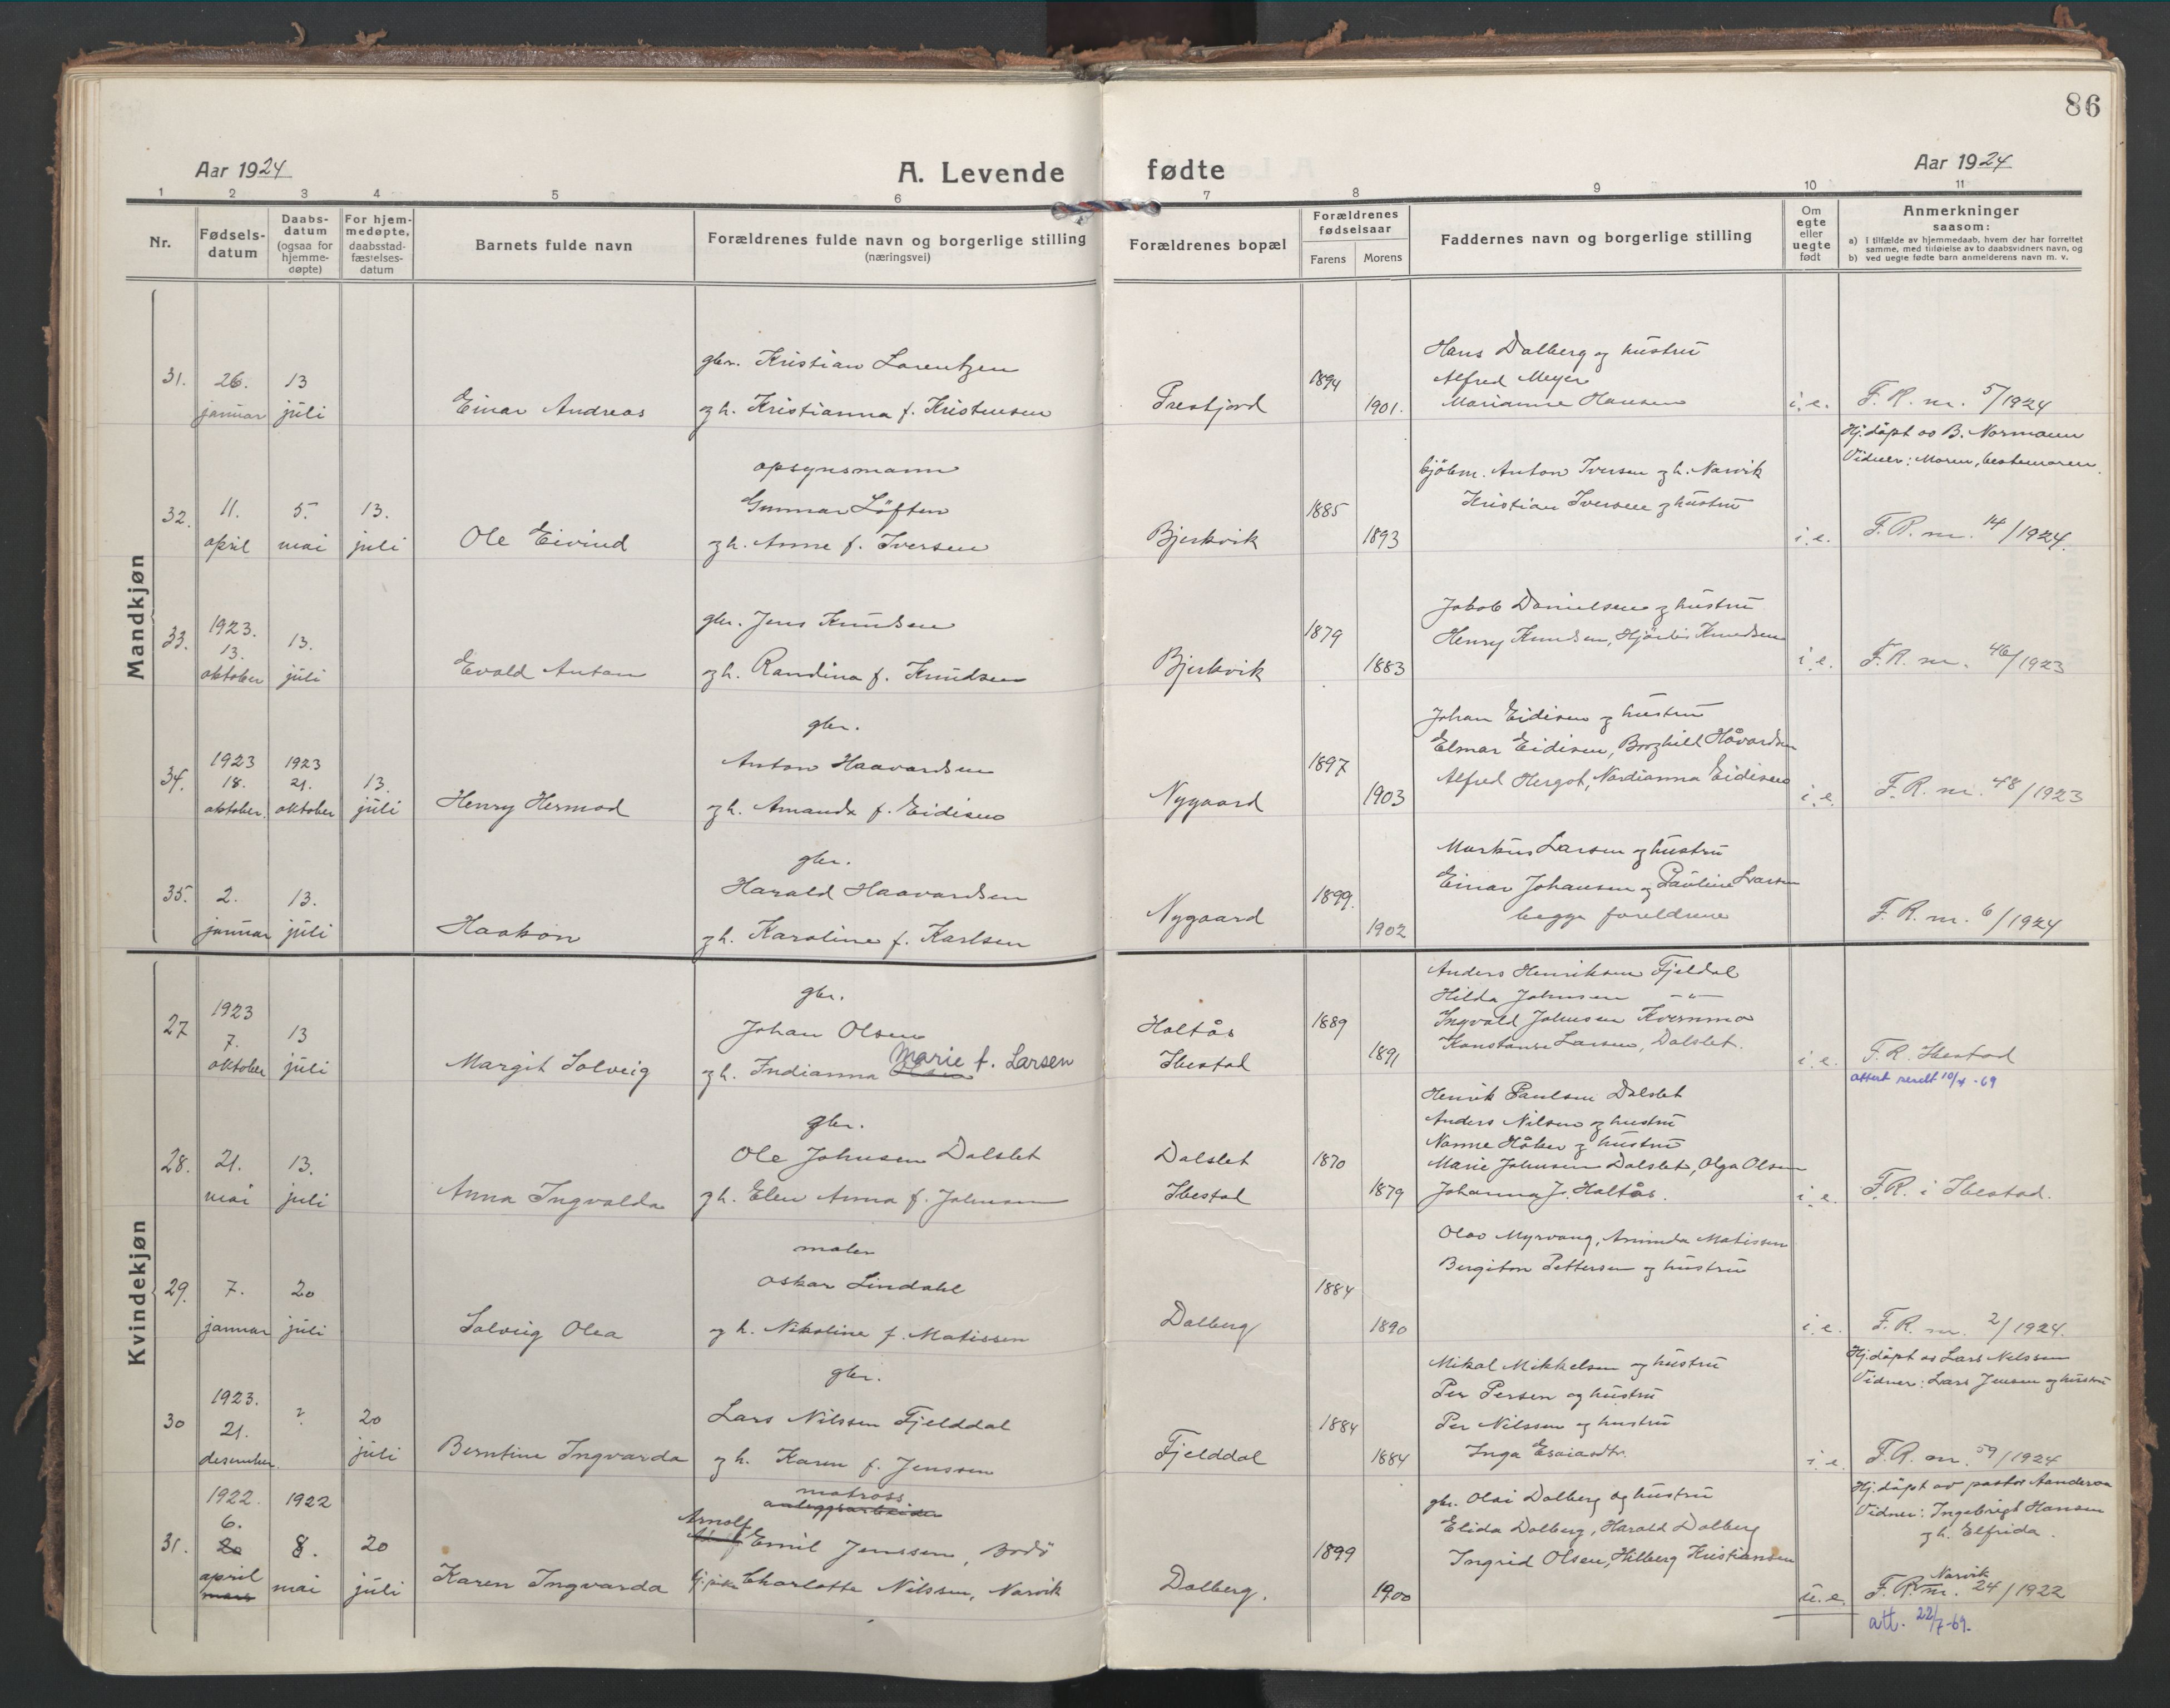 86
Aar 1924
A. Levende fødte
Aar 1924
1 2 3 4 5 6 7 8 9 10 11
Nr.
Fødsels-
datum
Daabs-
datum
(ogsaa for
hjemme-
døpte)
For hjem-
medøpte,
daabsstad-
fæstelses-
datum
Barnets fulde navn
Forældrenes fulde navn og borgerlige stilling
(næringsvei)
Forældrenes bopæl
Forældrenes
fødselsaar
Farens
Morens
Faddernes navn og borgerlige stilling
Om
egte
eller
uegte
født
Anmerkninger
saasom:
a) I tilfælde av hjemmedaab, hvem der har forrettet
samme, med tilføielse av to daabsvidners navn, og
b) ved uegte fødte barn anmelderens navn m. v.
Mandkjøn
31.
26.
januar
13
juli
Einar Andreas
gbr. Kristian Lorentzen
og h. Kristianna f. Kristensen
Presfjord
1894
1901.
Hans Dalberg og hustru
Alfred Meyer
Marianne Hansen
i. e.
F. R. nr. 5/1924
32.
11.
april
5.
mai
13.
juli
Ole Eivind
opsynsmann
Gunnar Löften
og h. Anne f. Iversen
Bjerkvik
1885
1893
Anton Iversen og h. Narvik
Kristian Iversen og hustru
i. e.
Hj. döpt av B. Normann
Vidner: Moren, bestemoren.
F. R. nr. 14/1924.
33.
1923.
13.
oktober
13.
juli
Evald Anton
gbr. Jens Knudsen
og h. Randina f. Knudsen
Bjerkvik
1879
1883
Jakob Danielsen og hustru
Henry Knudsen, Hjördis Knudsen
i. e.
F. R. nr. 46/1923
34.
1923
18.
oktober.
1923
21.
oktober
13.
juli
Henry Hermod
gbr.
Anton Haavardsen
og h. Amanda f. Eidisen
Nygaard
1897
1903
Johan Eidisen og hustru
Elmar Eidisen, Borghild Håvardsen
Alfred Hergot, Nordianna Eidisen
i. e.
F. R. nr. 48/1923
35.
2.
januar
13.
juli
Haakon
gbr.
Harald Haavardsen
og h. Karoline f. Karlsen
Nygaard
1899.
1902
Markus Larsen og hustru
Einar Johansen og Pauline Larsen
begge foreldrene
F. R. nr. 6/1924
Kvindekjøn
27
1923
7.
oktober
13
juli
Margit Solveig
gbr.
Johan Olsen
og h. Indianna Marie f. Larsen
Holtås
Ibestad
1889
1891
Anders Henriksen Fjeldal
Hilda Johnsen -"-
Ingvald Johnsen Kvernmo
Konstanse Larsen, Dalslet.
i. e.
F. R. Ibestad
attest sendt 10/4 -69
28.
21.
mai
13.
juli
Anna Ingvalda
gbr.
Ole Johnsen Dalslet
og h. Elen Anna f. Johnsen
Dalslet
Ibestad
1870
1879
Henrik Paulsen Dalslet
Anders Nilsen og hustru
Nanne Håker og hustru
Marie Johnsen Dalslet, Olga Olsen
Johanna J. Holtås.
i. e.
F. R. i Ibestad.
29.
7.
januar
20
juli
Solveig Olea
maler
Oskar Lindahl
og h. Nikoline f. Matissen
Dalberg
1884
1890
Olav Myrvang, Aminda Matissen
Birgiton Pettersen og hustru
i. e.
F. R. nr. 2/1924.
30
1923.
21.
desember.
?
20
juli
Berntine Ingvarda
gbr.
Lars Nilssen Fjelddal
og h. Karen f. Jenssen
Fjelddal
1884
1884
Mikal Mikkelsen og hustru
Per Persen og hustru
Per Nilssen og hustru
Inga Esaiasdtr.
i. e.
Hj. döpt av Lars Nilssen
Vidner: Lars Jensen og hustru
F. R. nr. 59/1924
31.
1922.
6.
20
april
mars
1922
8.
mai
20
juli
Karen Ingvarda
matross
anleggsarbeider
Arnolf
Emil Jenssen, Bodö
Charlotte Nilssen, Narvik
Dalberg.
1899
1900
gbr. Olai Dalberg og hustru
Elida Dalberg, Harald Dalberg
Ingrid Olsen, Hilberg Kristiansen
u. e.
Hj. döpt av pastor Aanderaa
Vidner: Ingebrigt Hansen
og h. Elfrida.
Narvik
F. R. nr. 24/1922
att. 22/7-69.